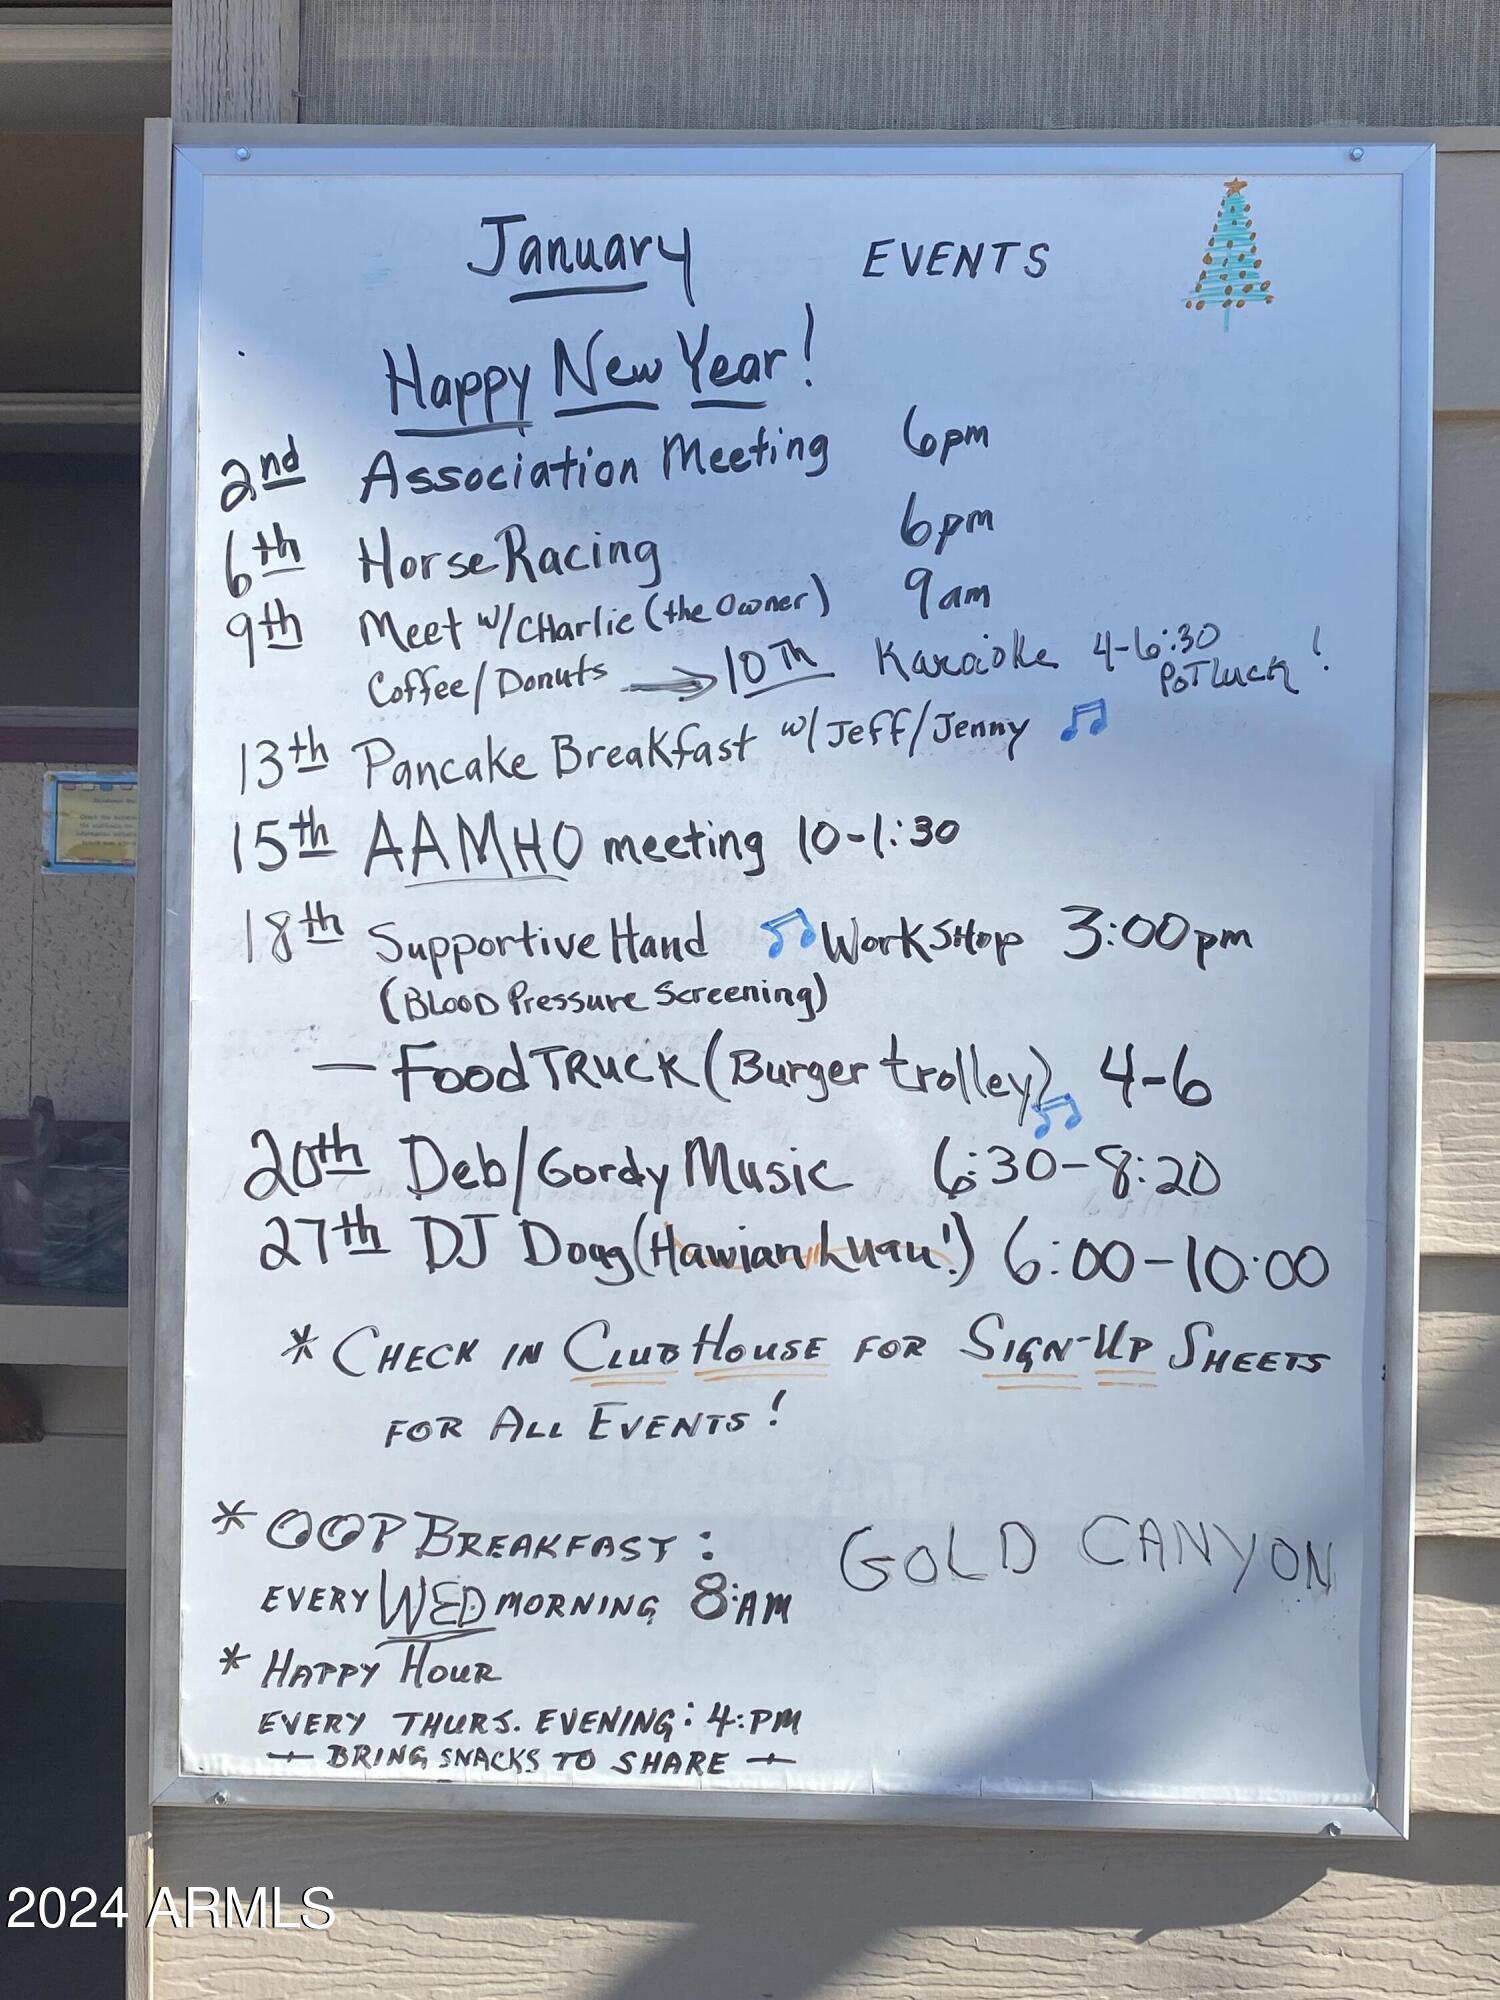 January EVENTS
Happy New Year!
2nd Association Meeting 6pm
6th Horse Racing 6pm
9th Meet w/CHarlie (the Owner) 9am
Coffee/Donuts → 10TH Karaoke 4-6:30 PoTluck!
13th Pancake Breakfast w/Jeff/Jenny
15th AAMHO meeting 10-1:30
18th Supportive Hand WorkSHop 3:00pm
(BLooD Pressure Screening)
— FoodTRUCK (Burger trolley) 4-6
20th Deb/Gordy Music 6:30-8:20
27th DJ Doug (Hawian Luau!) 6:00-10:00
* CHECK IN CLUB HOUSE FOR SIGN-UP SHEETS
FOR ALL EVENTS!
* OOP BREAKFAST:
EVERY WED MORNING 8:AM
GOLD CANYON
* HAPPY HOUR
EVERY THURS. EVENING: 4:PM
— BRING SNACKS TO SHARE —
2024 ARMLS